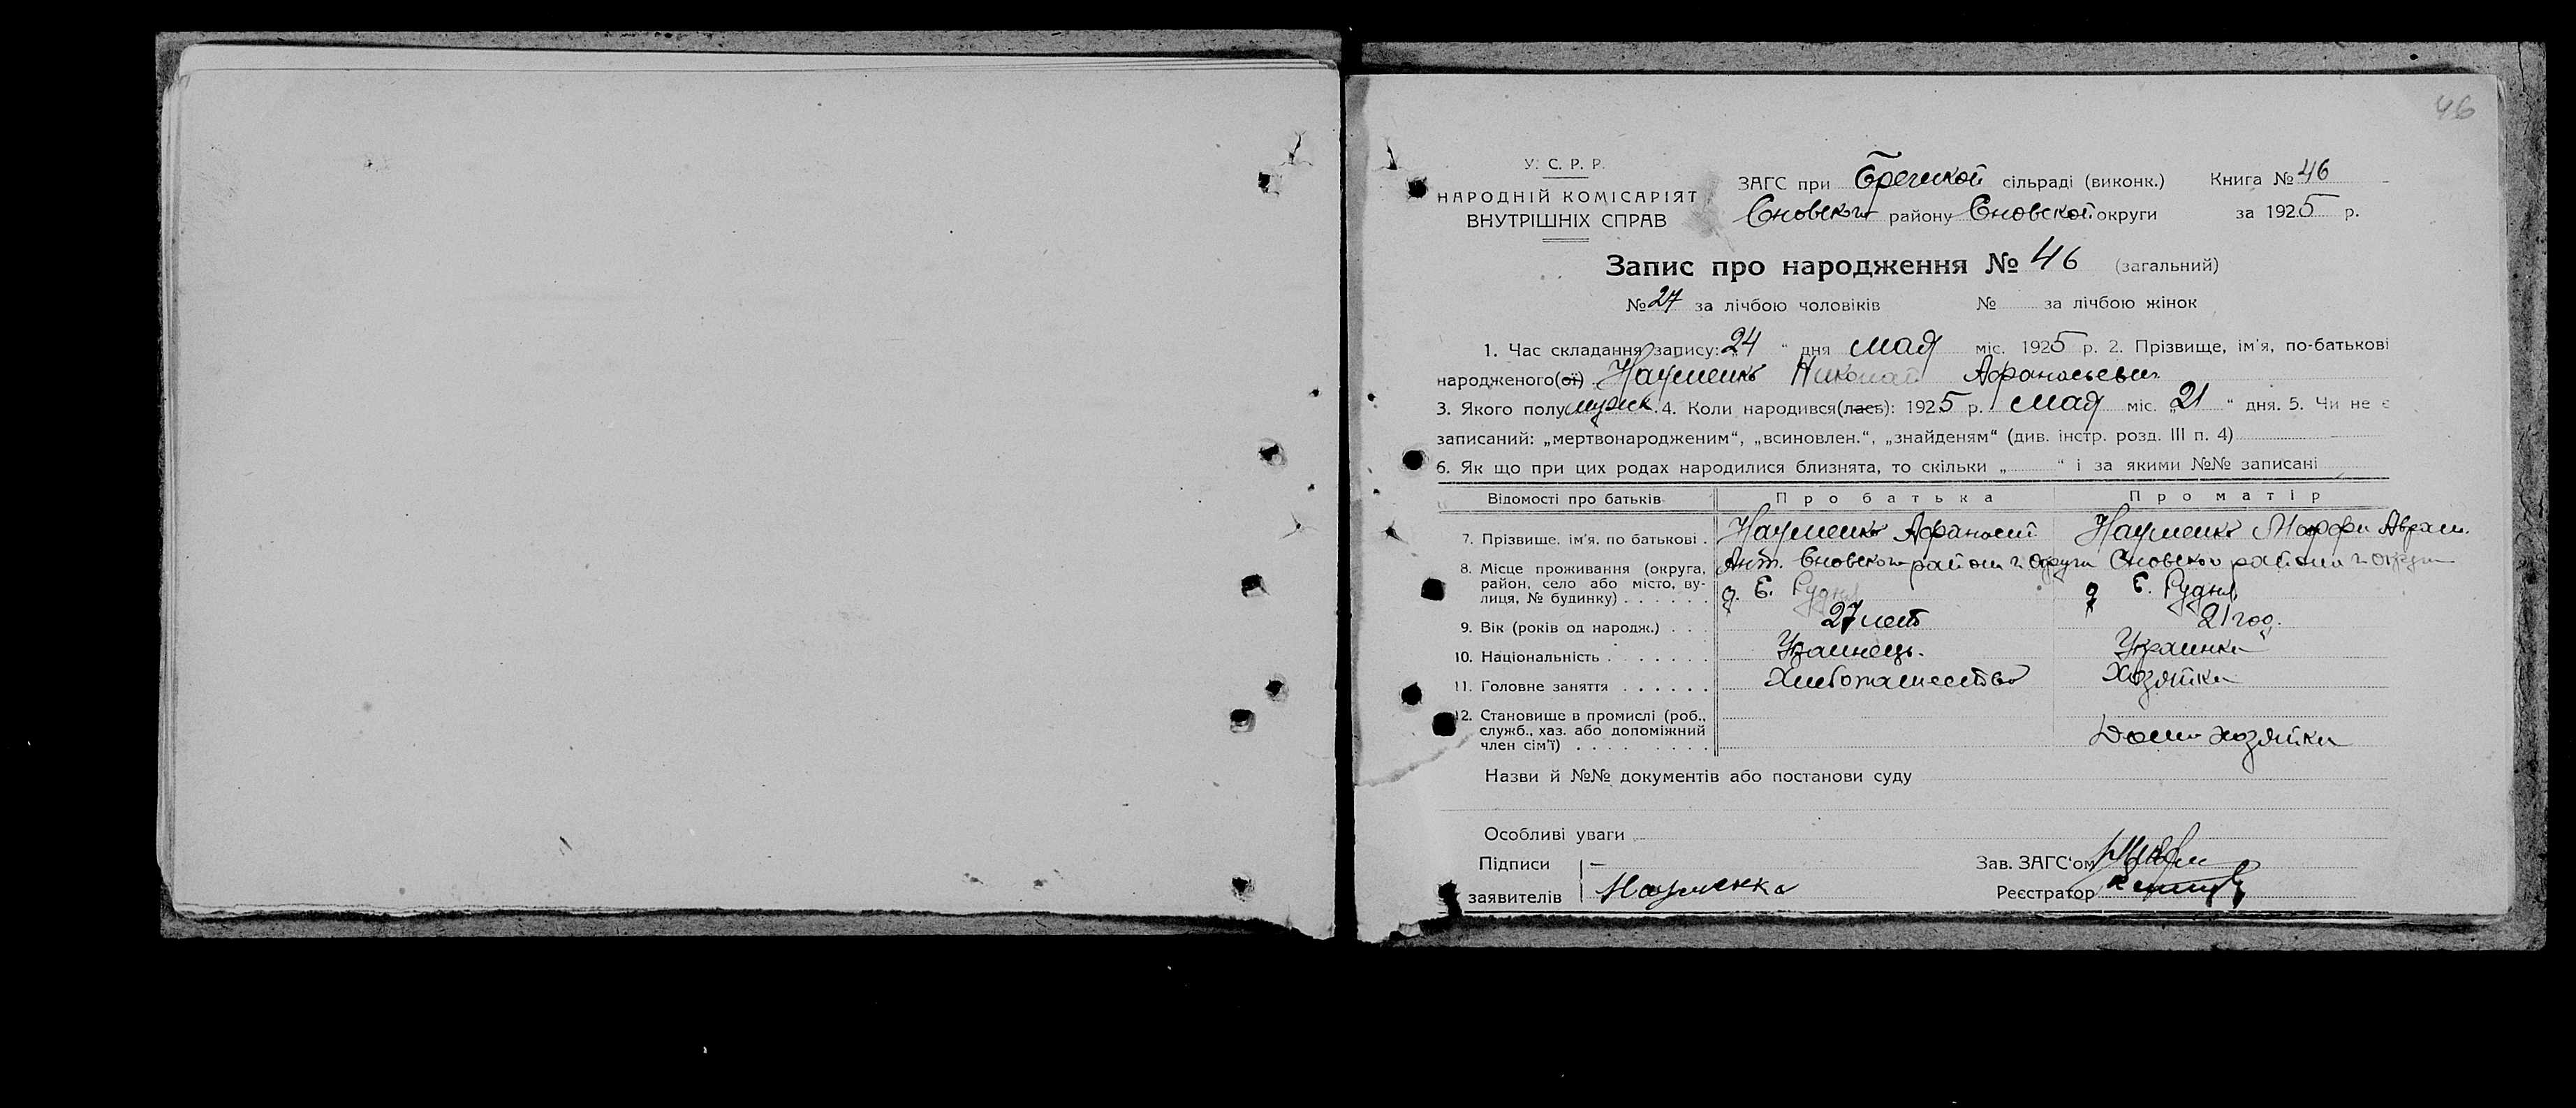 46
У. С. Р. Р.
НАРОДНІЙ КОМІСАРІЯТ
ВНУТРІШНІХ СПРАВ
ЗАГС при Бречской сільраді (виконк.) Книга № 46
Сновского району Сновской округи за 1925 р.
Запис про народження № 46 (загальний)
№ 27 за лічбою чоловіків № за лічбою жінок
1. Час складання запису: „24“ дня мая міс. 1925 р. 2. Прізвище, ім'я, по-батькові
народженого(ої) Науменко Николай Афанасьевич
3. Якого полу мужск. 4. Коли народився(лась): 1925 р. мая міс. „21“ дня. 5. Чи не є
записаний: „мертвонародженим“, „всиновлен.“, „знайденям“ (див. інстр. розд. III п. 4)
6. Як що при цих родах народилися близнята, то скільки „ “ і за якими №№ записані
Відомості про батьків Про батька Про матір
7. Прізвище, ім'я, по батькові . Науменко Афанасий Ант. Науменко Марфа Аврам.
8. Місце проживання (округа, район, село або місто, вулиця, № будинку) . . . . . . Сновского района и округи д. Е. Рудня Сновского района и округи д. Е. Рудня
9. Вік (років од народж.) . . . 27 лет 21 год.
10. Національність . . . . . . . Украинець. Украинка
11. Головне заняття . . . . . . Хлебопашество Хозяйка
12. Становище в промислі (роб., служб., хаз. або допоміжний член сім'ї) . . . . . . . . Дом. хозяйка
Назви й №№ документів або постанови суду
Особливі уваги
Підписи — Зав. ЗАГС'ом
заявителів Науменко Реєстратор